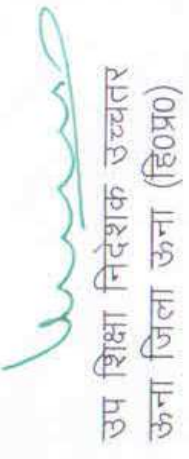 उप शिक्षा निदेशक उच्चतर
ऊना जिला ऊना (हि0प्र0)